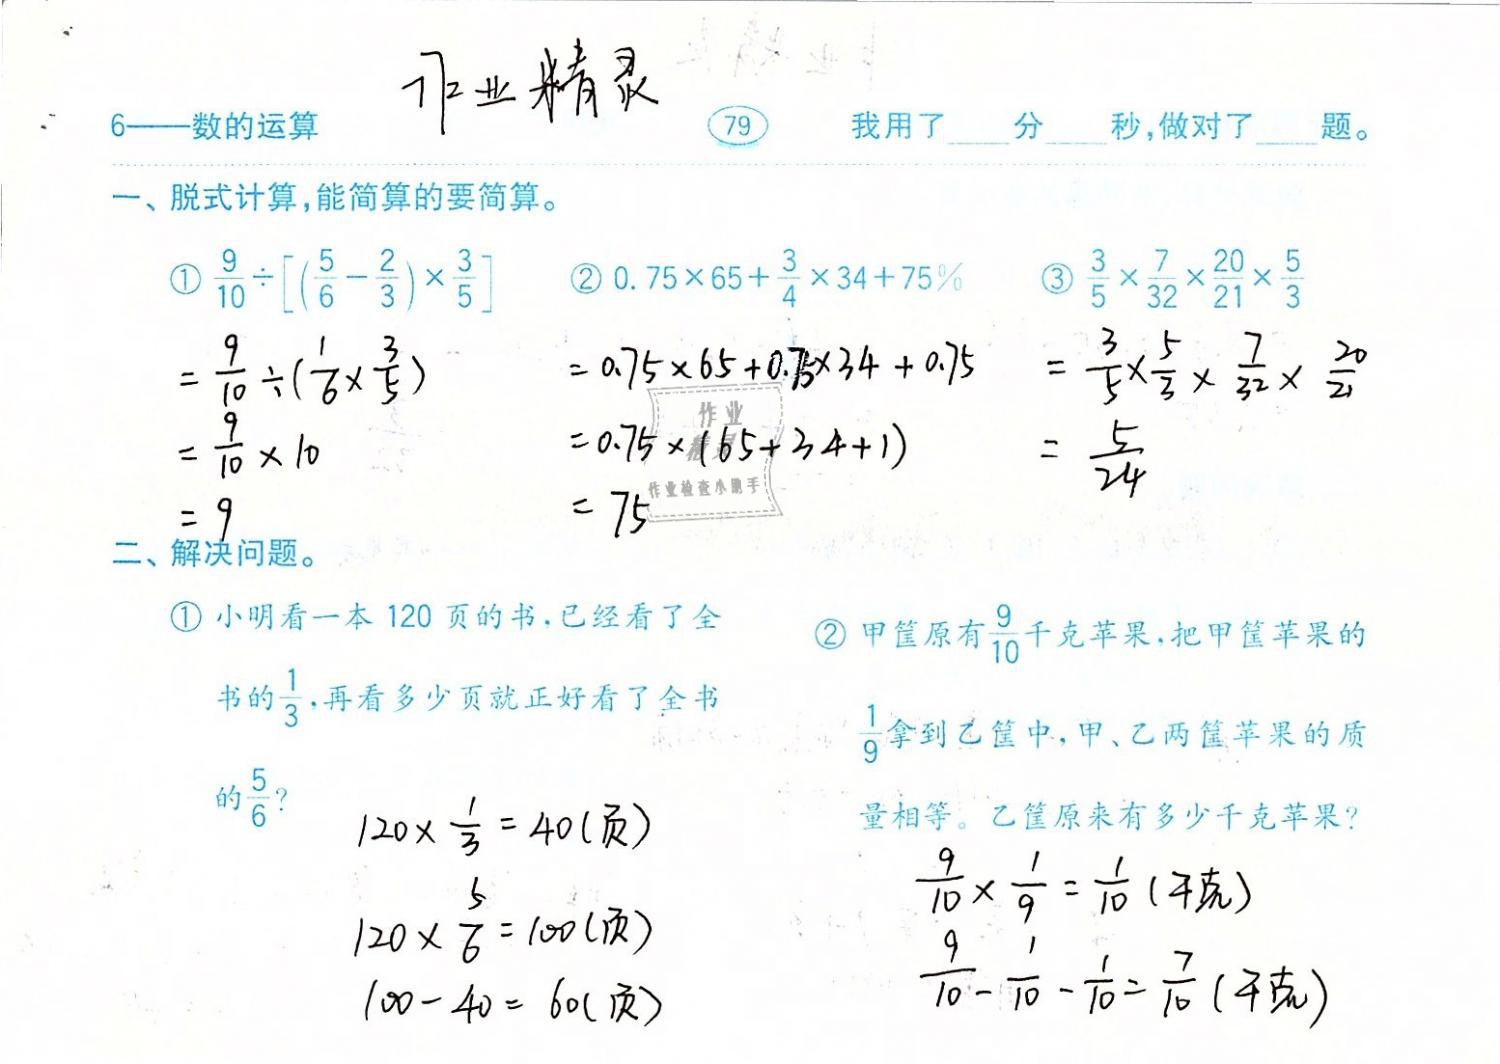 作业精灵
6——数的运算 79 我用了____分____秒,做对了____题。
一、脱式计算,能简算的要简算。
① 9/10÷[(5/6-2/3)×3/5] ② 0.75×65+3/4×34+75% ③ 3/5×7/32×20/21×5/3
=9/10÷(1/6×3/5) =0.75×65+0.75×34+0.75 =3/5×5/3×7/32×20/21
=9/10×10 =0.75×(65+34+1) =5/24
=9 =75
作业
精灵
作业检查小助手
二、解决问题。
① 小明看一本120页的书,已经看了全
书的1/3,再看多少页就正好看了全书
的5/6?
120×1/3=40(页)
120×5/6=100(页)
100-40=60(页)
② 甲筐原有9/10千克苹果,把甲筐苹果的
1/9拿到乙筐中,甲、乙两筐苹果的质
量相等。乙筐原来有多少千克苹果?
9/10×1/9=1/10(千克)
9/10-1/10-1/10=7/10(千克)